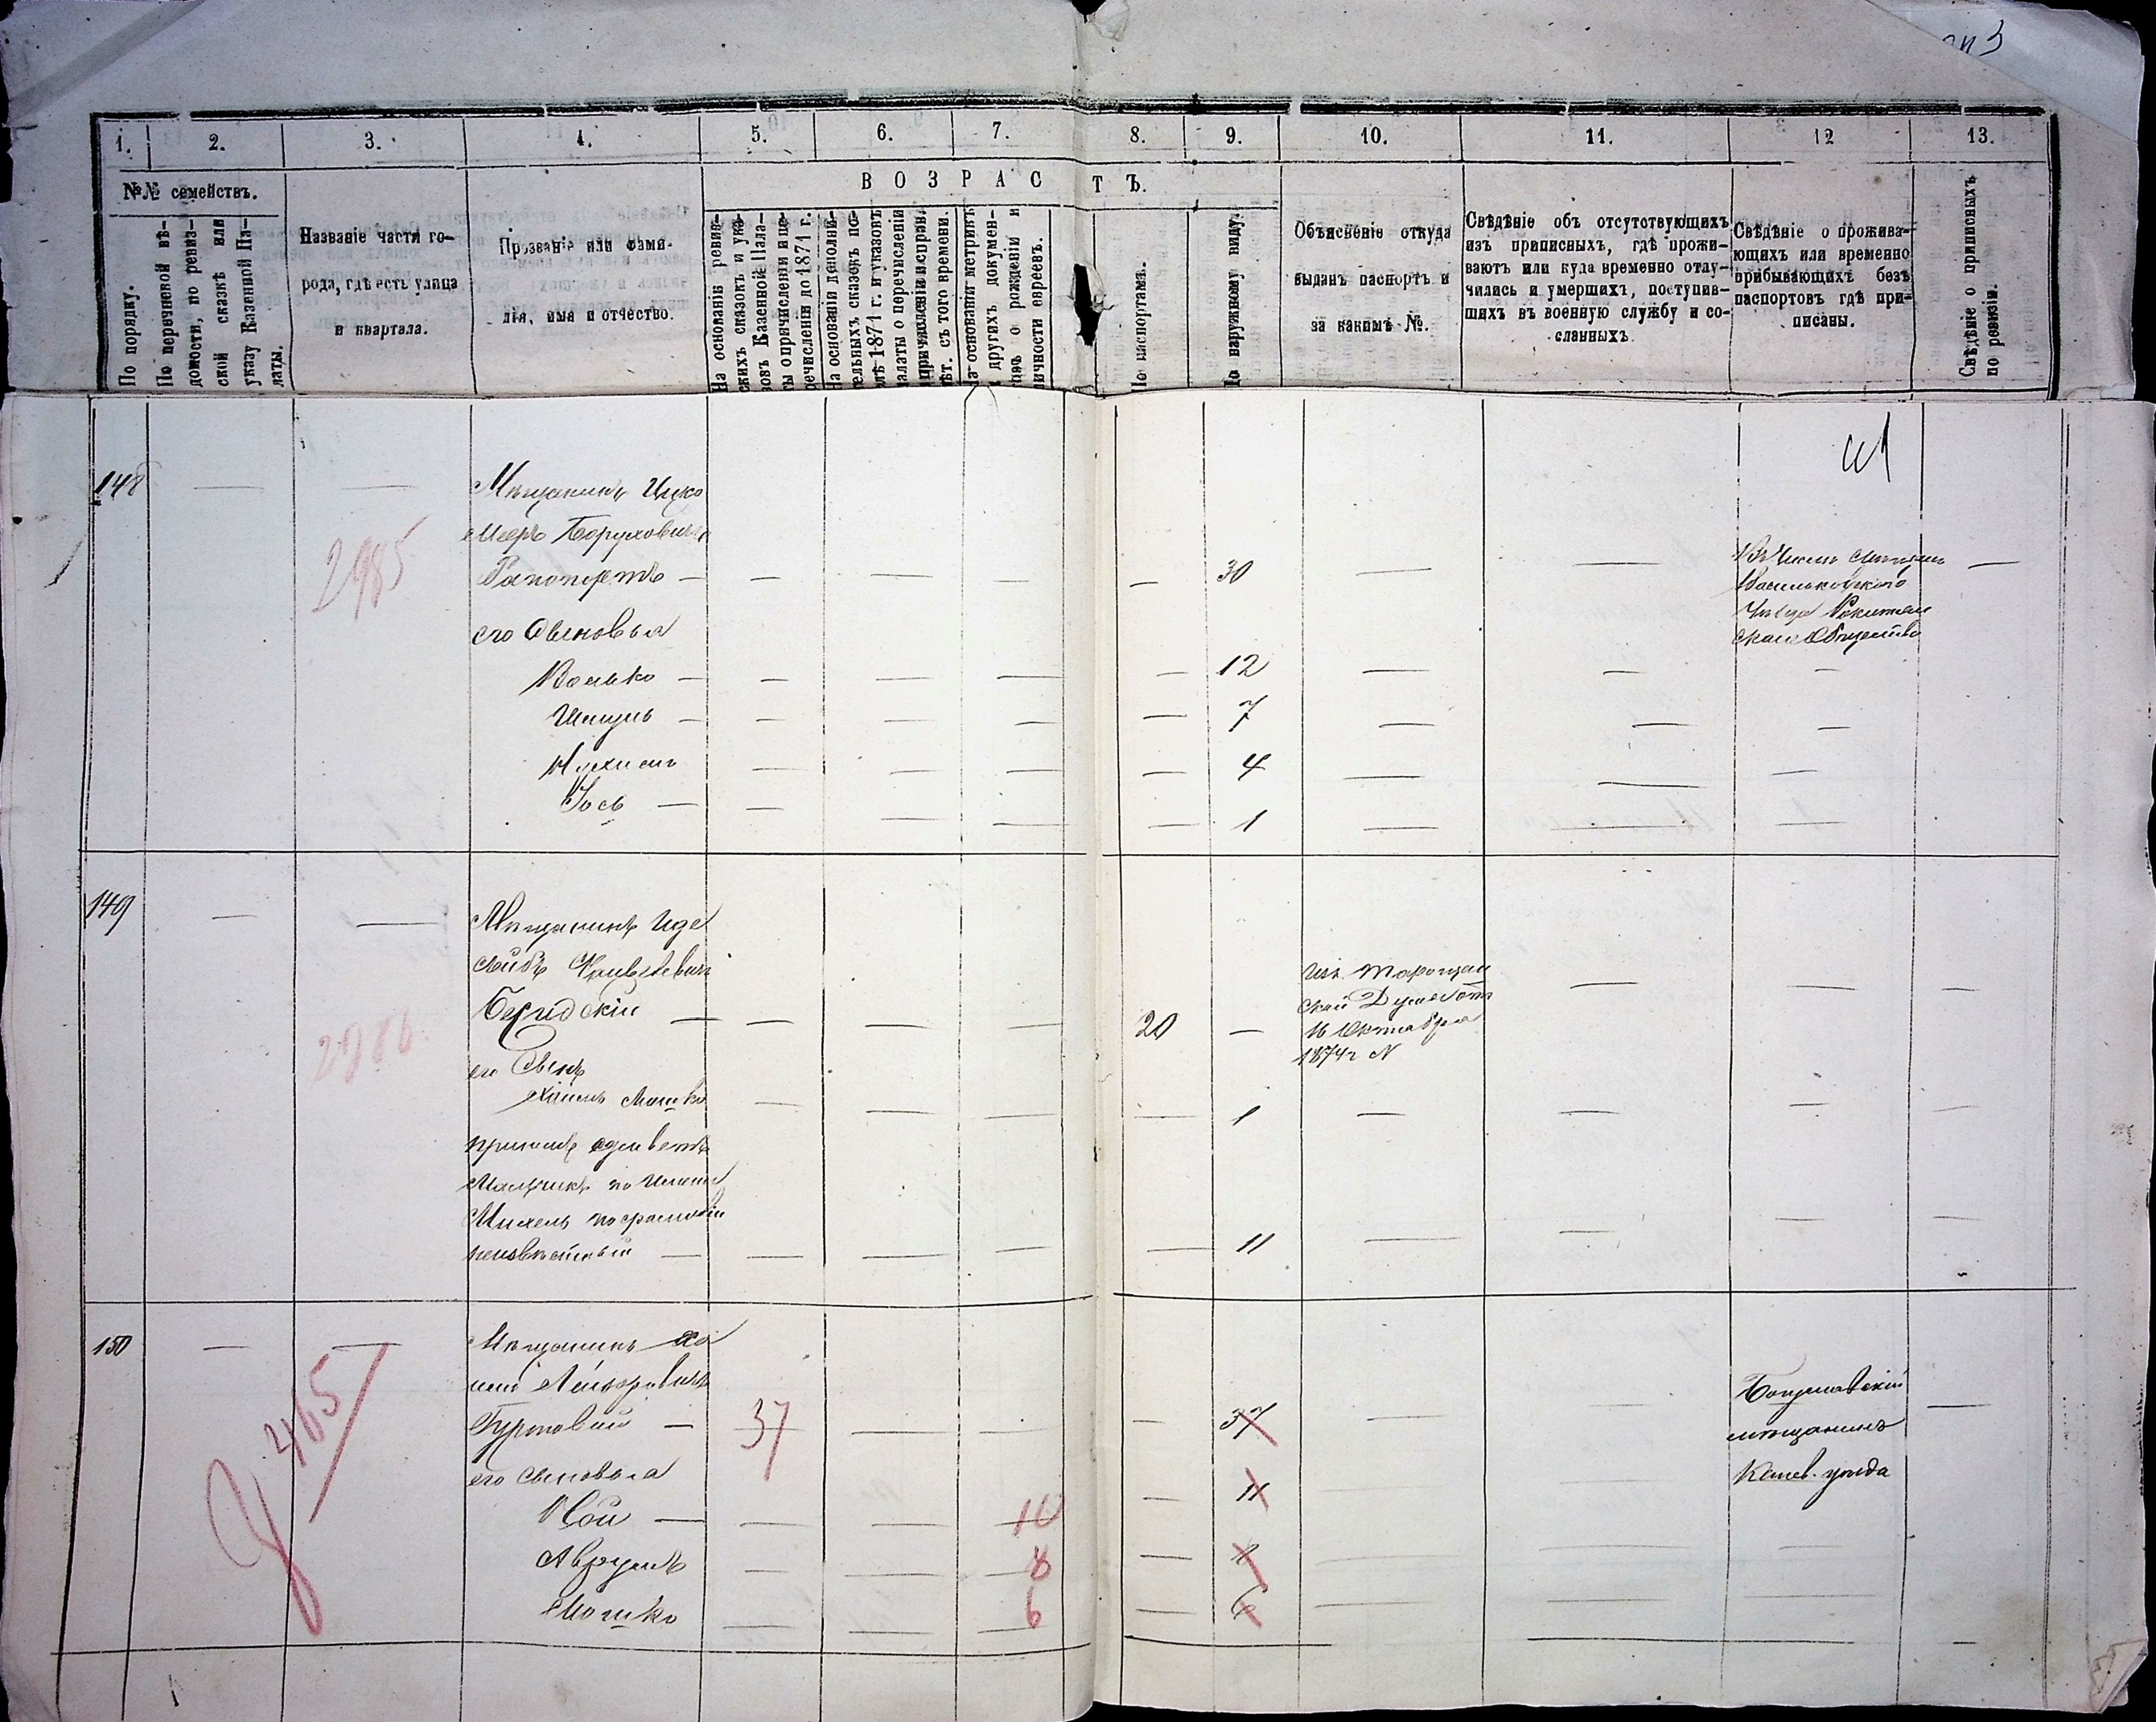 1. 2. 3. 4. 5. 6. 7. 8. 9. 10. 11. 12 13.
№№ семействъ.
ВОЗРАСТЪ.
По порядку.
По перечневой вѣ-
домости, по ревиз-
ской сказкѣ или
указу Казенной Па-
латы.
Названіе части го-
рода, гдѣ есть улица
и квартала.
Прозваніе или фами-
лія, имя и отчество.
На основаніи ревиз-
скихъ сказокъ и ука-
зовъ Казенной Пала-
ты о причисленіи и пе-
речисленіи до 1871 г.
На основаніи дополни-
тельныхъ сказокъ по-
слѣ 1871 г. и указовъ
палаты о перечисленіи
съ того времени.
На основаніи метрикъ
и другихъ докумен-
товъ о рожденіи и
личности евреевъ.
По паспортамъ.
По наружному виду.
Объясненіе откуда
выданъ паспортъ и
за какимъ №.
Свѣдѣніе объ отсутствующихъ
изъ приписныхъ, гдѣ прожи-
ваютъ или куда временно отлу-
чились и умершихъ, поступив-
шихъ въ военную службу и со-
сланныхъ
Свѣдѣніе о прожива-
ющихъ или временно
прибывающихъ безъ
паспортовъ гдѣ при-
писаны.
Свѣдѣніе о приписныхъ
по ревизіи.
148 — — Мѣщанинъ Ицко
Мееръ Боруховичъ
2985
Рапопортъ — — — — — 30 — —
Васильковскаго
Уѣзда
Общества
его сыновья
Волько — — — — — 12 — — —
Шмуль — — — — — 7 — — —
— — — — 4 — — —
Іось — — — — — 1 — — —
149 — — Мѣщанинъ
Лейбъ
— — — — 20 — Изъ Таращан
ской Думы отъ
16 Октября
1874 г №
2986
его Сынъ
Мошко — — — — 1 — — — —
Мальчикъ по имени
Михель по фамиліи
неизвѣстный — — — — — 11 — — — —
150 — — Мѣщанинъ
Гуртовой — 37 — — — 37 — —
Богуславскій
мѣщанинъ
Канев. уѣзда
465
его сыновья
— — — 10 — 11
Аврумъ — — 8 — 8
Мошко — — 6 — 6